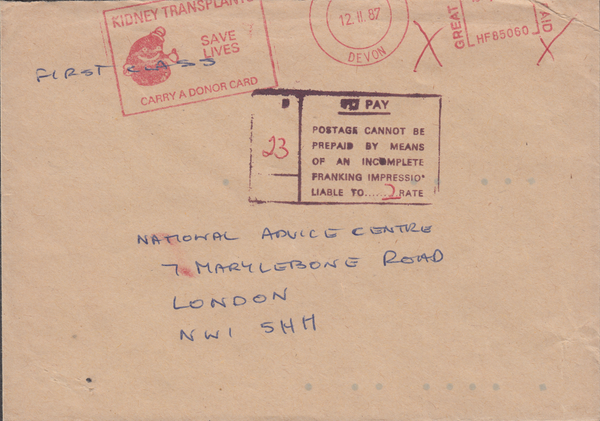 KIDNEY TRANSPLANTS
SAVE
LIVES
CARRY A DONOR CARD
12. II. 87
DEVON
GREAT
HF85060
PAID
FIRST CLASS
PAY
23
POSTAGE CANNOT BE
PREPAID BY MEANS
OF AN INCOMPLETE
FRANKING IMPRESSIO
LIABLE TO......2 RATE
NATIONAL ADVICE CENTRE
7 MARYLEBONE ROAD
LONDON
NW1 5HH